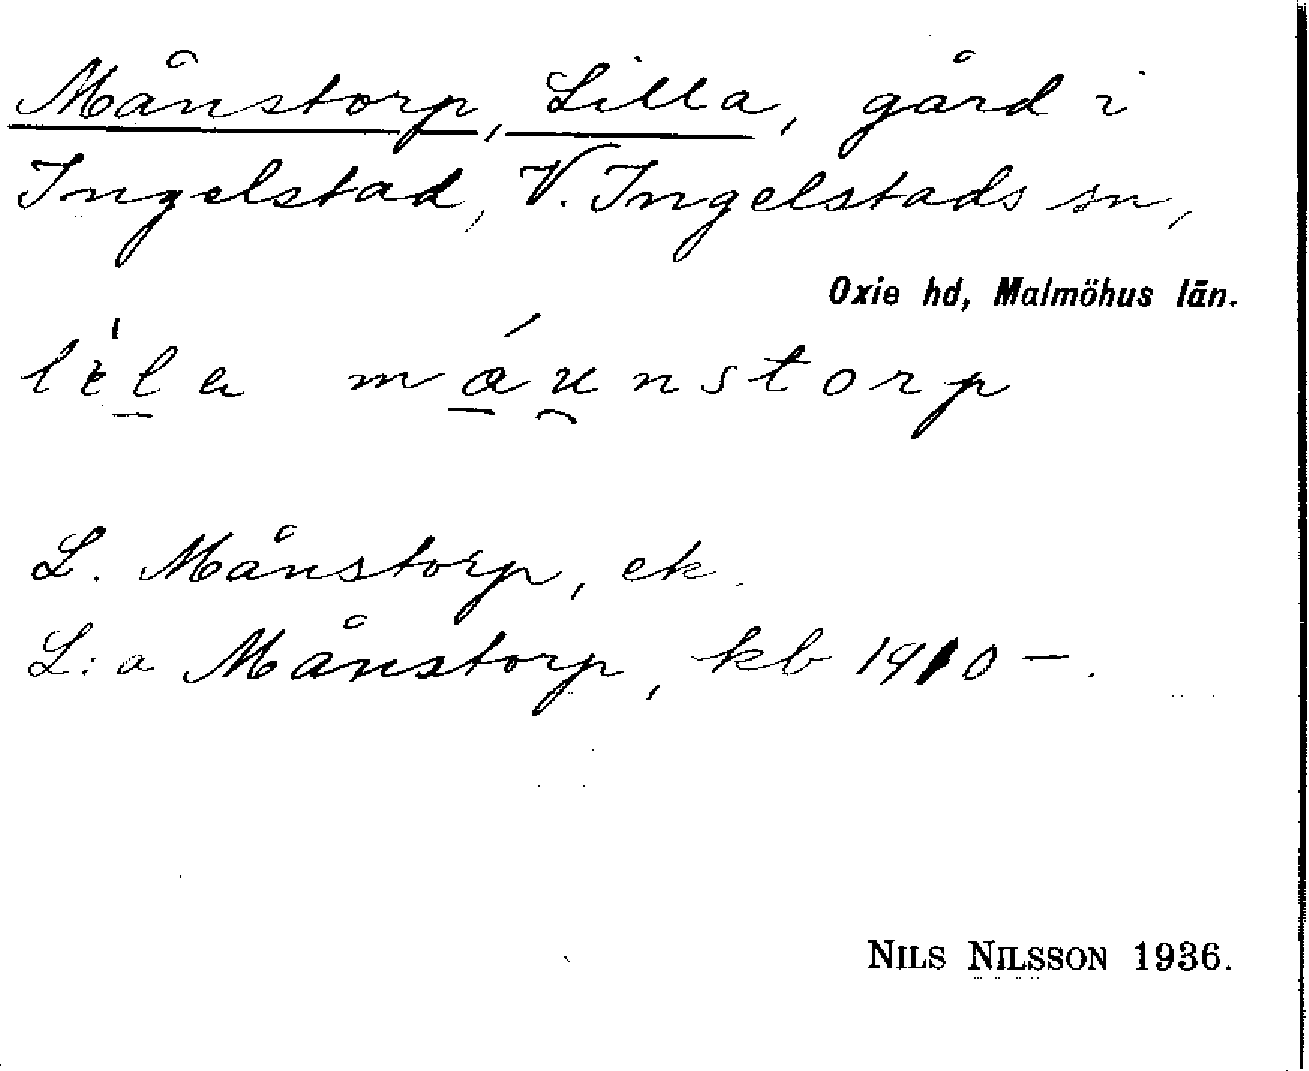 Månstorp, Lilla, gård i
Ingelstad, V. Ingelstads sn,
Oxie hd, Malmöhus län.
L. Månstorp, ek.
L:a Månstorp, kb 1910–.
NILS NILSSON 1936.